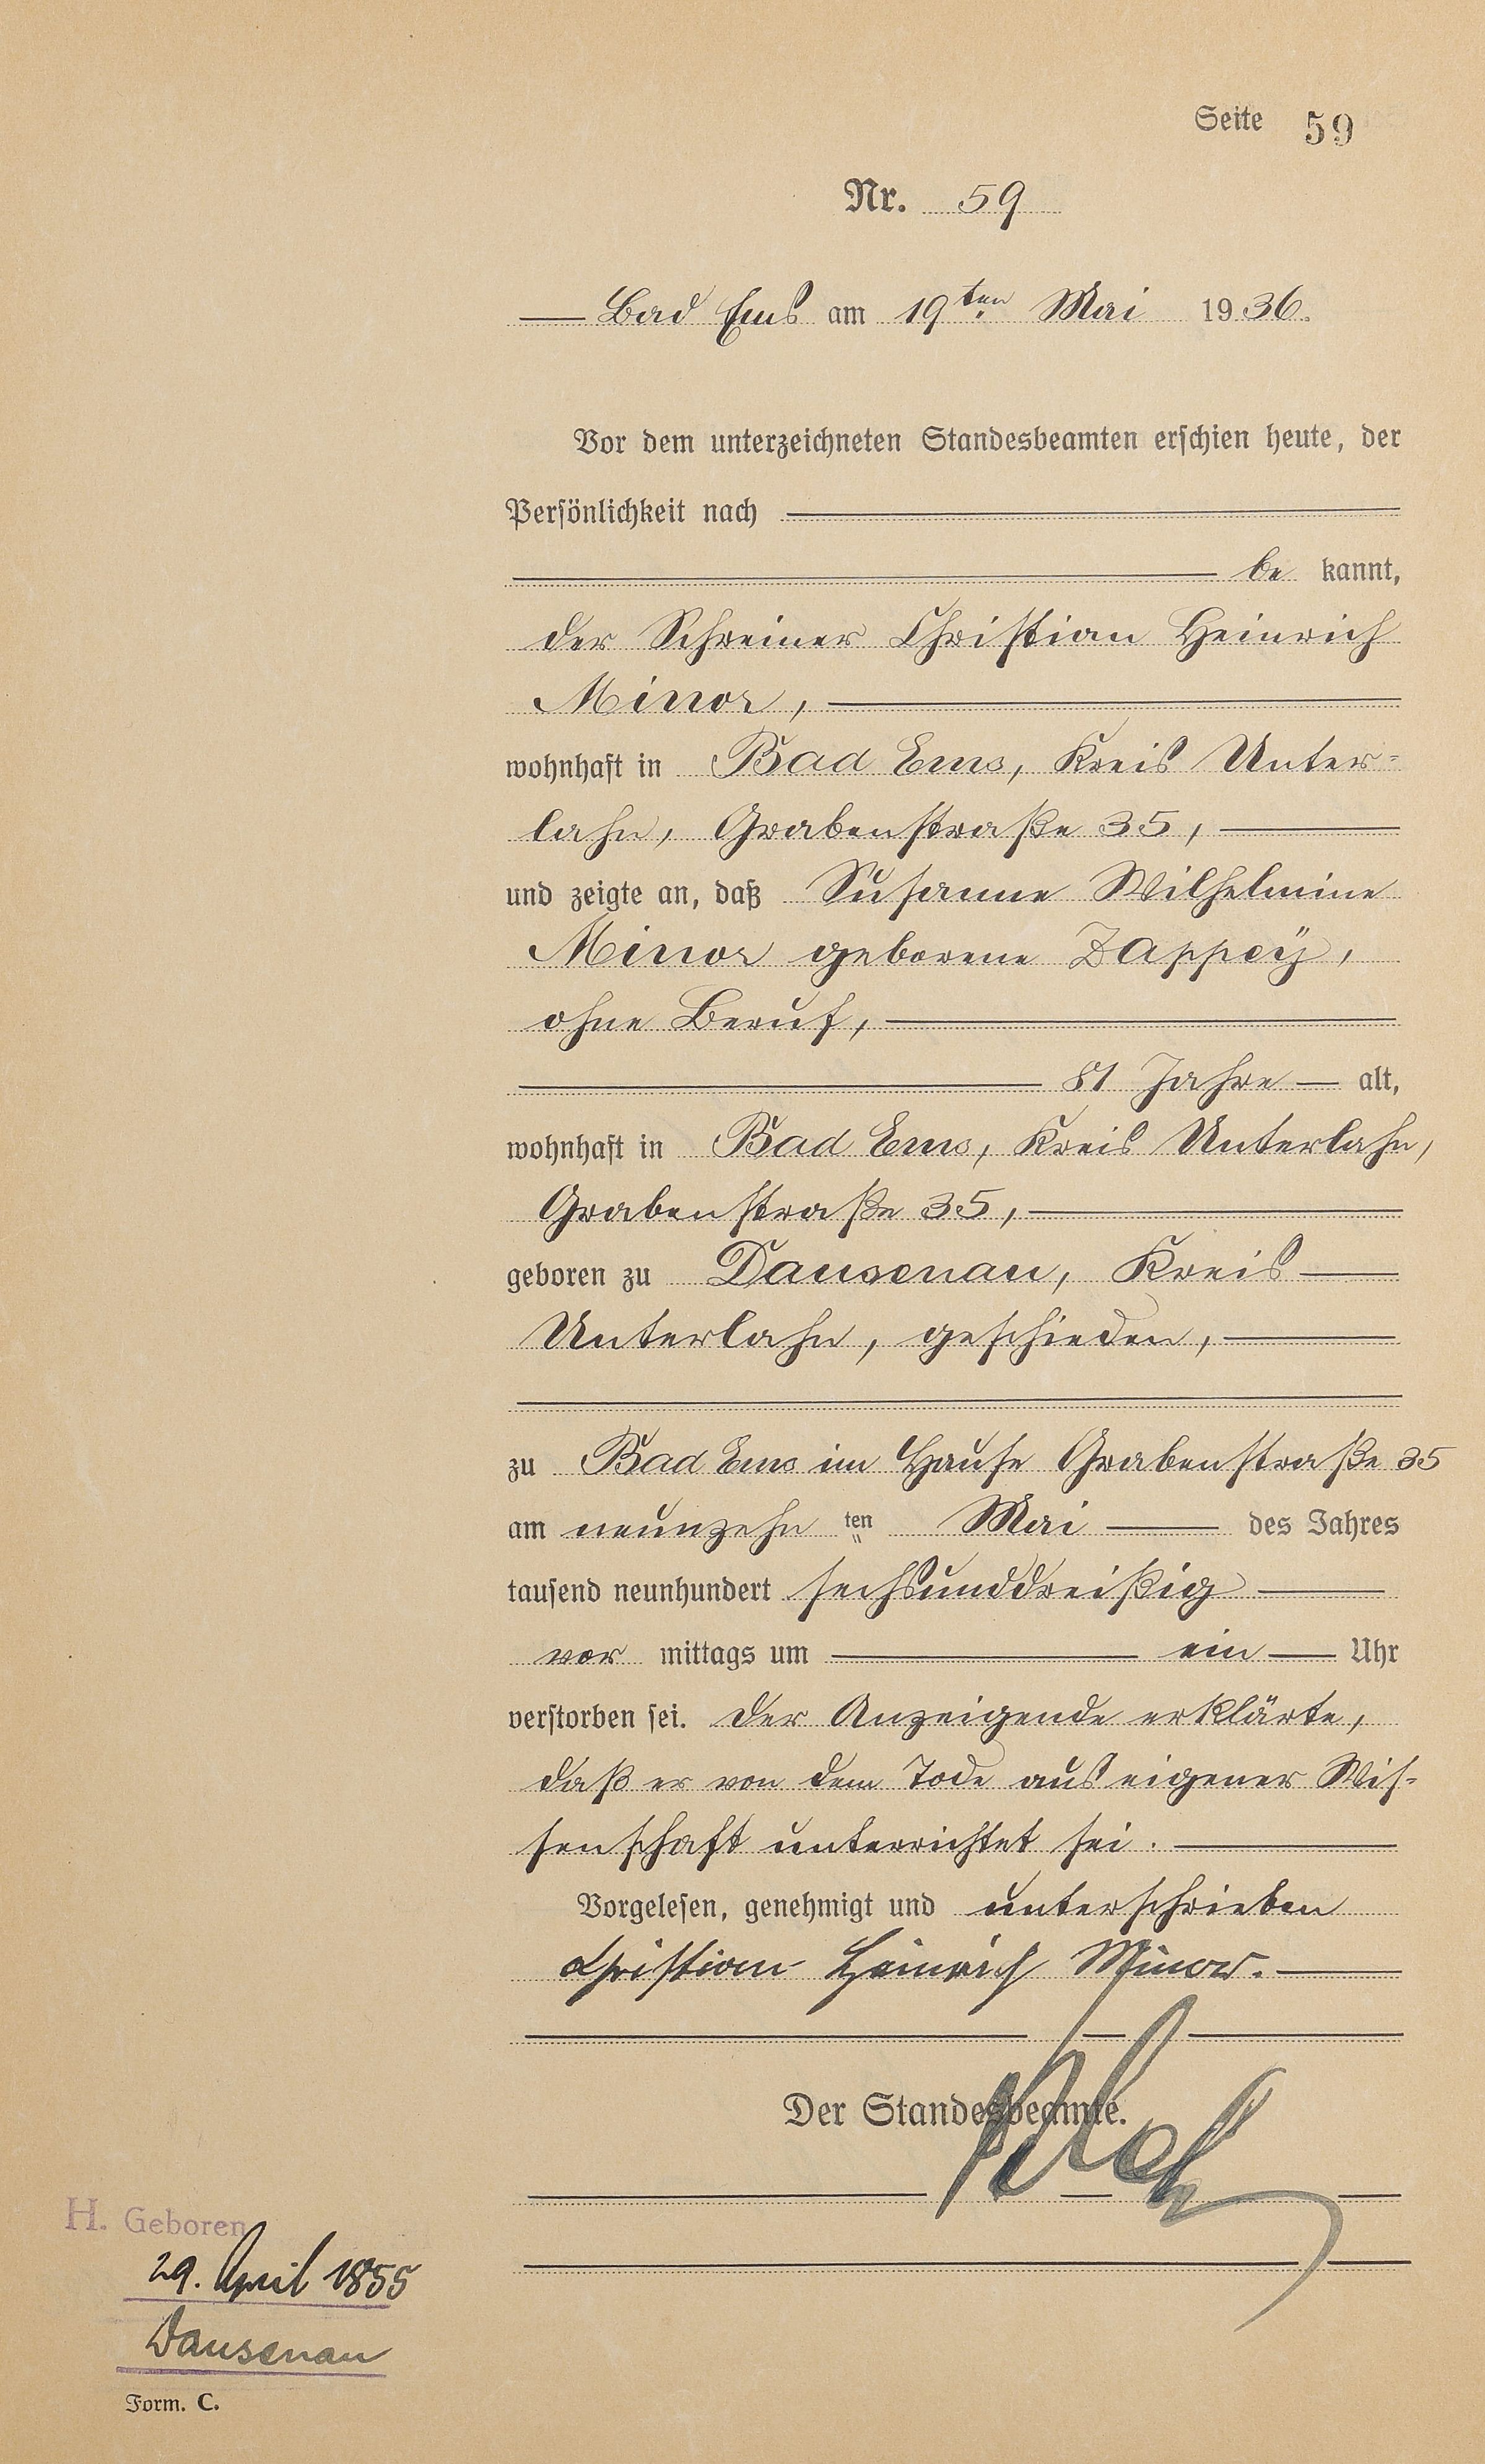 Seite 59
Nr. 59
Bad Ems am 19ten Mai 1936.
Vor dem unterzeichneten Standesbeamten erschien heute, der
Persönlichkeit nach
be kannt,
der Schreiner Christian Heinrich
Minor,
wohnhaft in Bad Ems, Kreis Unter-
lahn, Grabenstraße 35,
und zeigte an, daß Susanne Wilhelmine
Minor geborene Zappeÿ,
ohne Beruf,
81 Jahre alt,
wohnhaft in Bad Ems, Kreis Unterlahn,
Grabenstraße 35,
geboren zu Dausenau, Kreis
Unterlahn, geschieden,
zu Bad Ems im Hause Grabenstraße 35
am neunzehn ten Mai des Jahres
tausend neunhundert sechsunddreißig
vor mittags um ein Uhr
verstorben sei. Der Anzeigende erklärte,
daß er von dem Tode aus eigener Wis-
senschaft unterrichtet sei.
Vorgelesen, genehmigt und unterschrieben
Christian Heinrich Minor.
Der Standesbeamte.
H. Geboren
29. April 1855
Dausenau
Form. C.